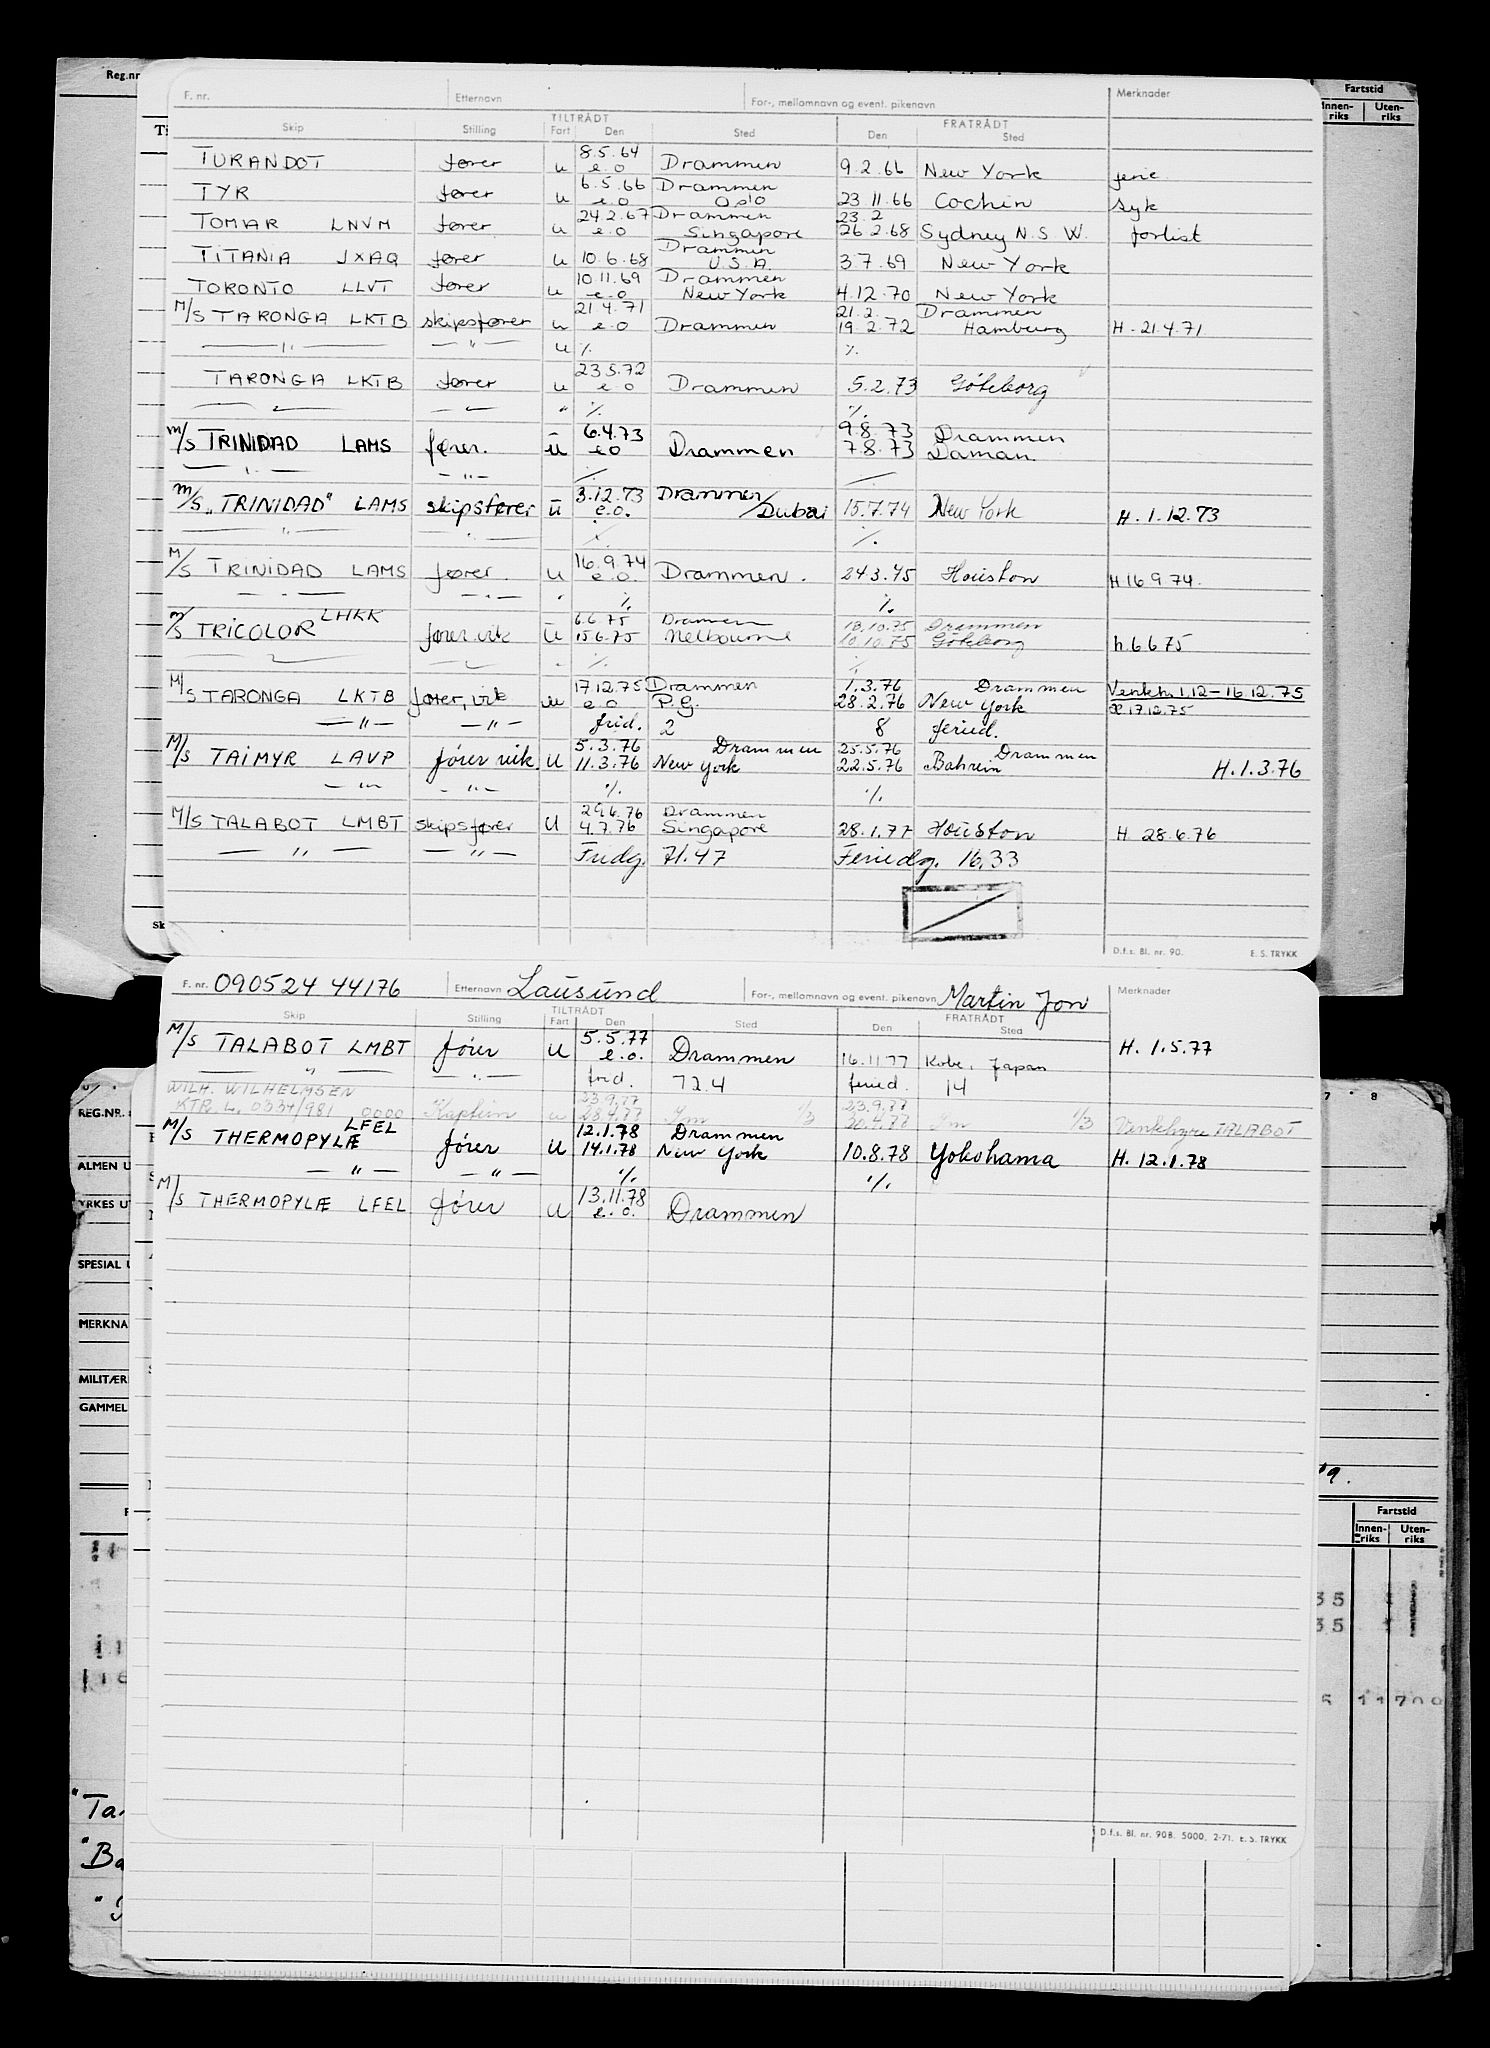 Reg.nr
Fartstid
Innen-
riks
Uten-
riks
F. nr. Etternavn For-, mellomnavn og event. pikenavn Merknader
TILTRÅDT FRATRÅDT
Skip Stilling Fart Den Sted Den Sted
8.5.64
TURANDOT fører u e.o Drammen 9.2.66 New York ferie
6.5.66 Drammen
TYR fører u e.o Oslo 23 11.66 Cochin syk
24.2.67 Drammen 23.2
TOMAR LNVM fører u e.o Singapore 26 2.68 Sydney N.S.W. forlist
Drammen
TITANIA JXAQ fører u 10.6.68 U.S.A. 3.7.69 New York
10.11.69 Drammen
TORONTO LLVT fører u e.o New York 4.12.70 New York
21.4.71 21.2. Drammen
M/S TARONGA LKTB skipsfører u e.o Drammen 19.2.72 Hamburg H. 21.4.71
— " — — " — u ٪ ٪
23.5.72
TARONGA LKTB fører u e.o Drammen 5.2.73 Göteborg
" ٪ ٪
6.4.73 9.8.73 Drammen
M/S TRINIDAD LAMS fører. u e.o Drammen 7.8.73 Daman.
— " — — " — ٪
3.12.73 Drammen
M/S "TRINIDAD" LAMS skipsfører u e.o. /Dubai 15.7.74 New York H. 1.12.73
" " ٪ ٪
16.9.74
M/S TRINIDAD LAMS fører. u e.o. Drammen. 24.3.75 Houston H 16 9 74.
— " — — " — " ٪ ٪
LHKK 6.6.75 Drammen 18.10.75 Drammen
M/S TRICOLOR fører vik u 15.6.75 Melbourne 10.10.75 Göteborg h. 6 6 75
٪ ٪
17.12.75 Drammen 1.3.76 Drammen Ventehr. 1.12-16.12.75
M/S TARONGA LKTB fører, vik u e.o P.G. 28.2.76 New York 17.12.75
— " — — " — frid. 2 8 feried.
5.3.76 Drammen 25.5.76 Drammen
M/S TAIMYR LAVP fører vik. u 11.3.76 New York 22.5.76 Bahrein H. 1.3.76
— " — — " — ٪ ٪
29.6.76 Drammen
M/S TALABOT LMBT skipsfører U 4.7.76 Singapore 28.1.77 Houston H 28.6.76
— " — — " — Fridg. 71.47 Feriedg. 16,33
D.f.s. Bl. nr. 90. E. S. TRYKK
F. nr. 090524 44176 Etternavn Lausund For-, mellomnavn og event. pikenavn Martin Jon Merknader
TILTRÅDT FRATRÅDT
Skip Stilling Fart Den Sted Den Sted
5.5.77
M/S TALABOT LMBT fører U e.o. Drammen 16.11.77 Kobe, Japan H. 1.5.77
— " — — " — frid. 72.4 feried. 14
WILH. WILHELMSEN 23.9.77 23.9.77
KTR. L. 0334/981 0000 Kaptein u 1/3 1/3 TALABOT
LFEL 12.1.78 Drammen
M/S THERMOPYLÆ fører U 14.1.78 New York 10.8.78 Yokohama H. 12.1.78
— " — — " — ٪ ٪
13.11.78
M/S THERMOPYLÆ LFEL fører U e.o. Drammen
D.f.s. Bl. nr. 90B. 5000. 2-71. E. S. TRYKK
REG.NR.
ALMEN U
YRKES UT
SPESIAL U
MERKNA
MILITÆR
GAMMEL
7 8
Fartstid
Innen-
riks
Uten-
riks
35
35
11700
"Ta
"Ba